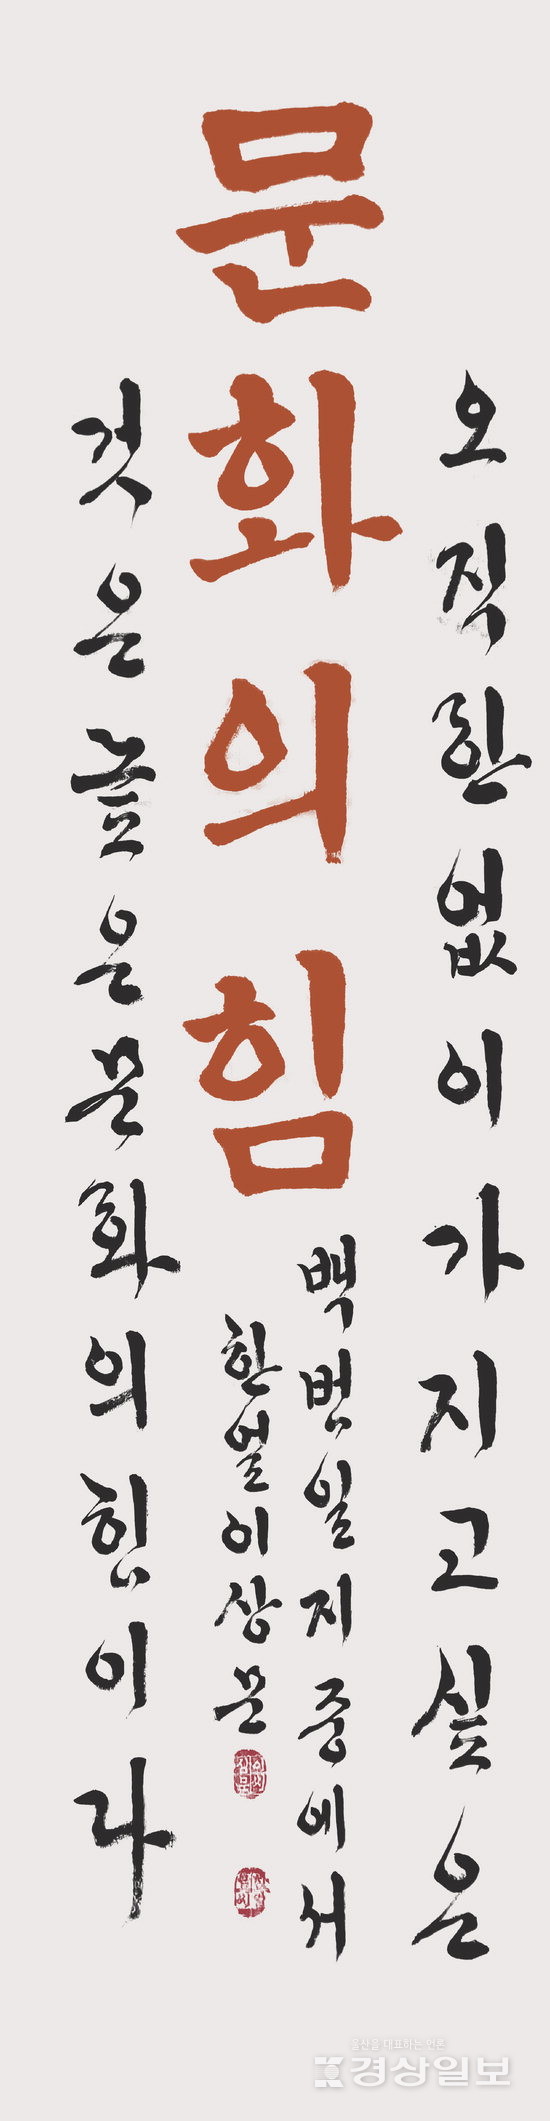 문화의힘
오직한없이가지고싶은
것은높은문화의힘이다
백범일지중에서
한얼이상문
울산을 대표하는 언론
경상일보